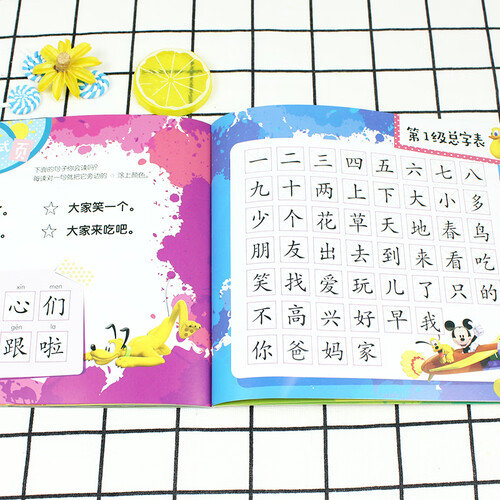 式 页
下面的句子你会读吗？
每读对一句就把它旁边的 ☆ 涂上颜色。
☆ 大家笑一个。
☆ 大家来吃吧。
xīn men
心 们
gēn la
跟 啦
第1级总字表
一 二 三 四 五 六 七 八
九 十 两 上 下 大 小 多
少 个 花 草 天 地 春 鸟
朋 友 出 去 到 来 看 吃
笑 找 爱 玩 儿 了 只 的
不 高 兴 好 早 我
你 爸 妈 家